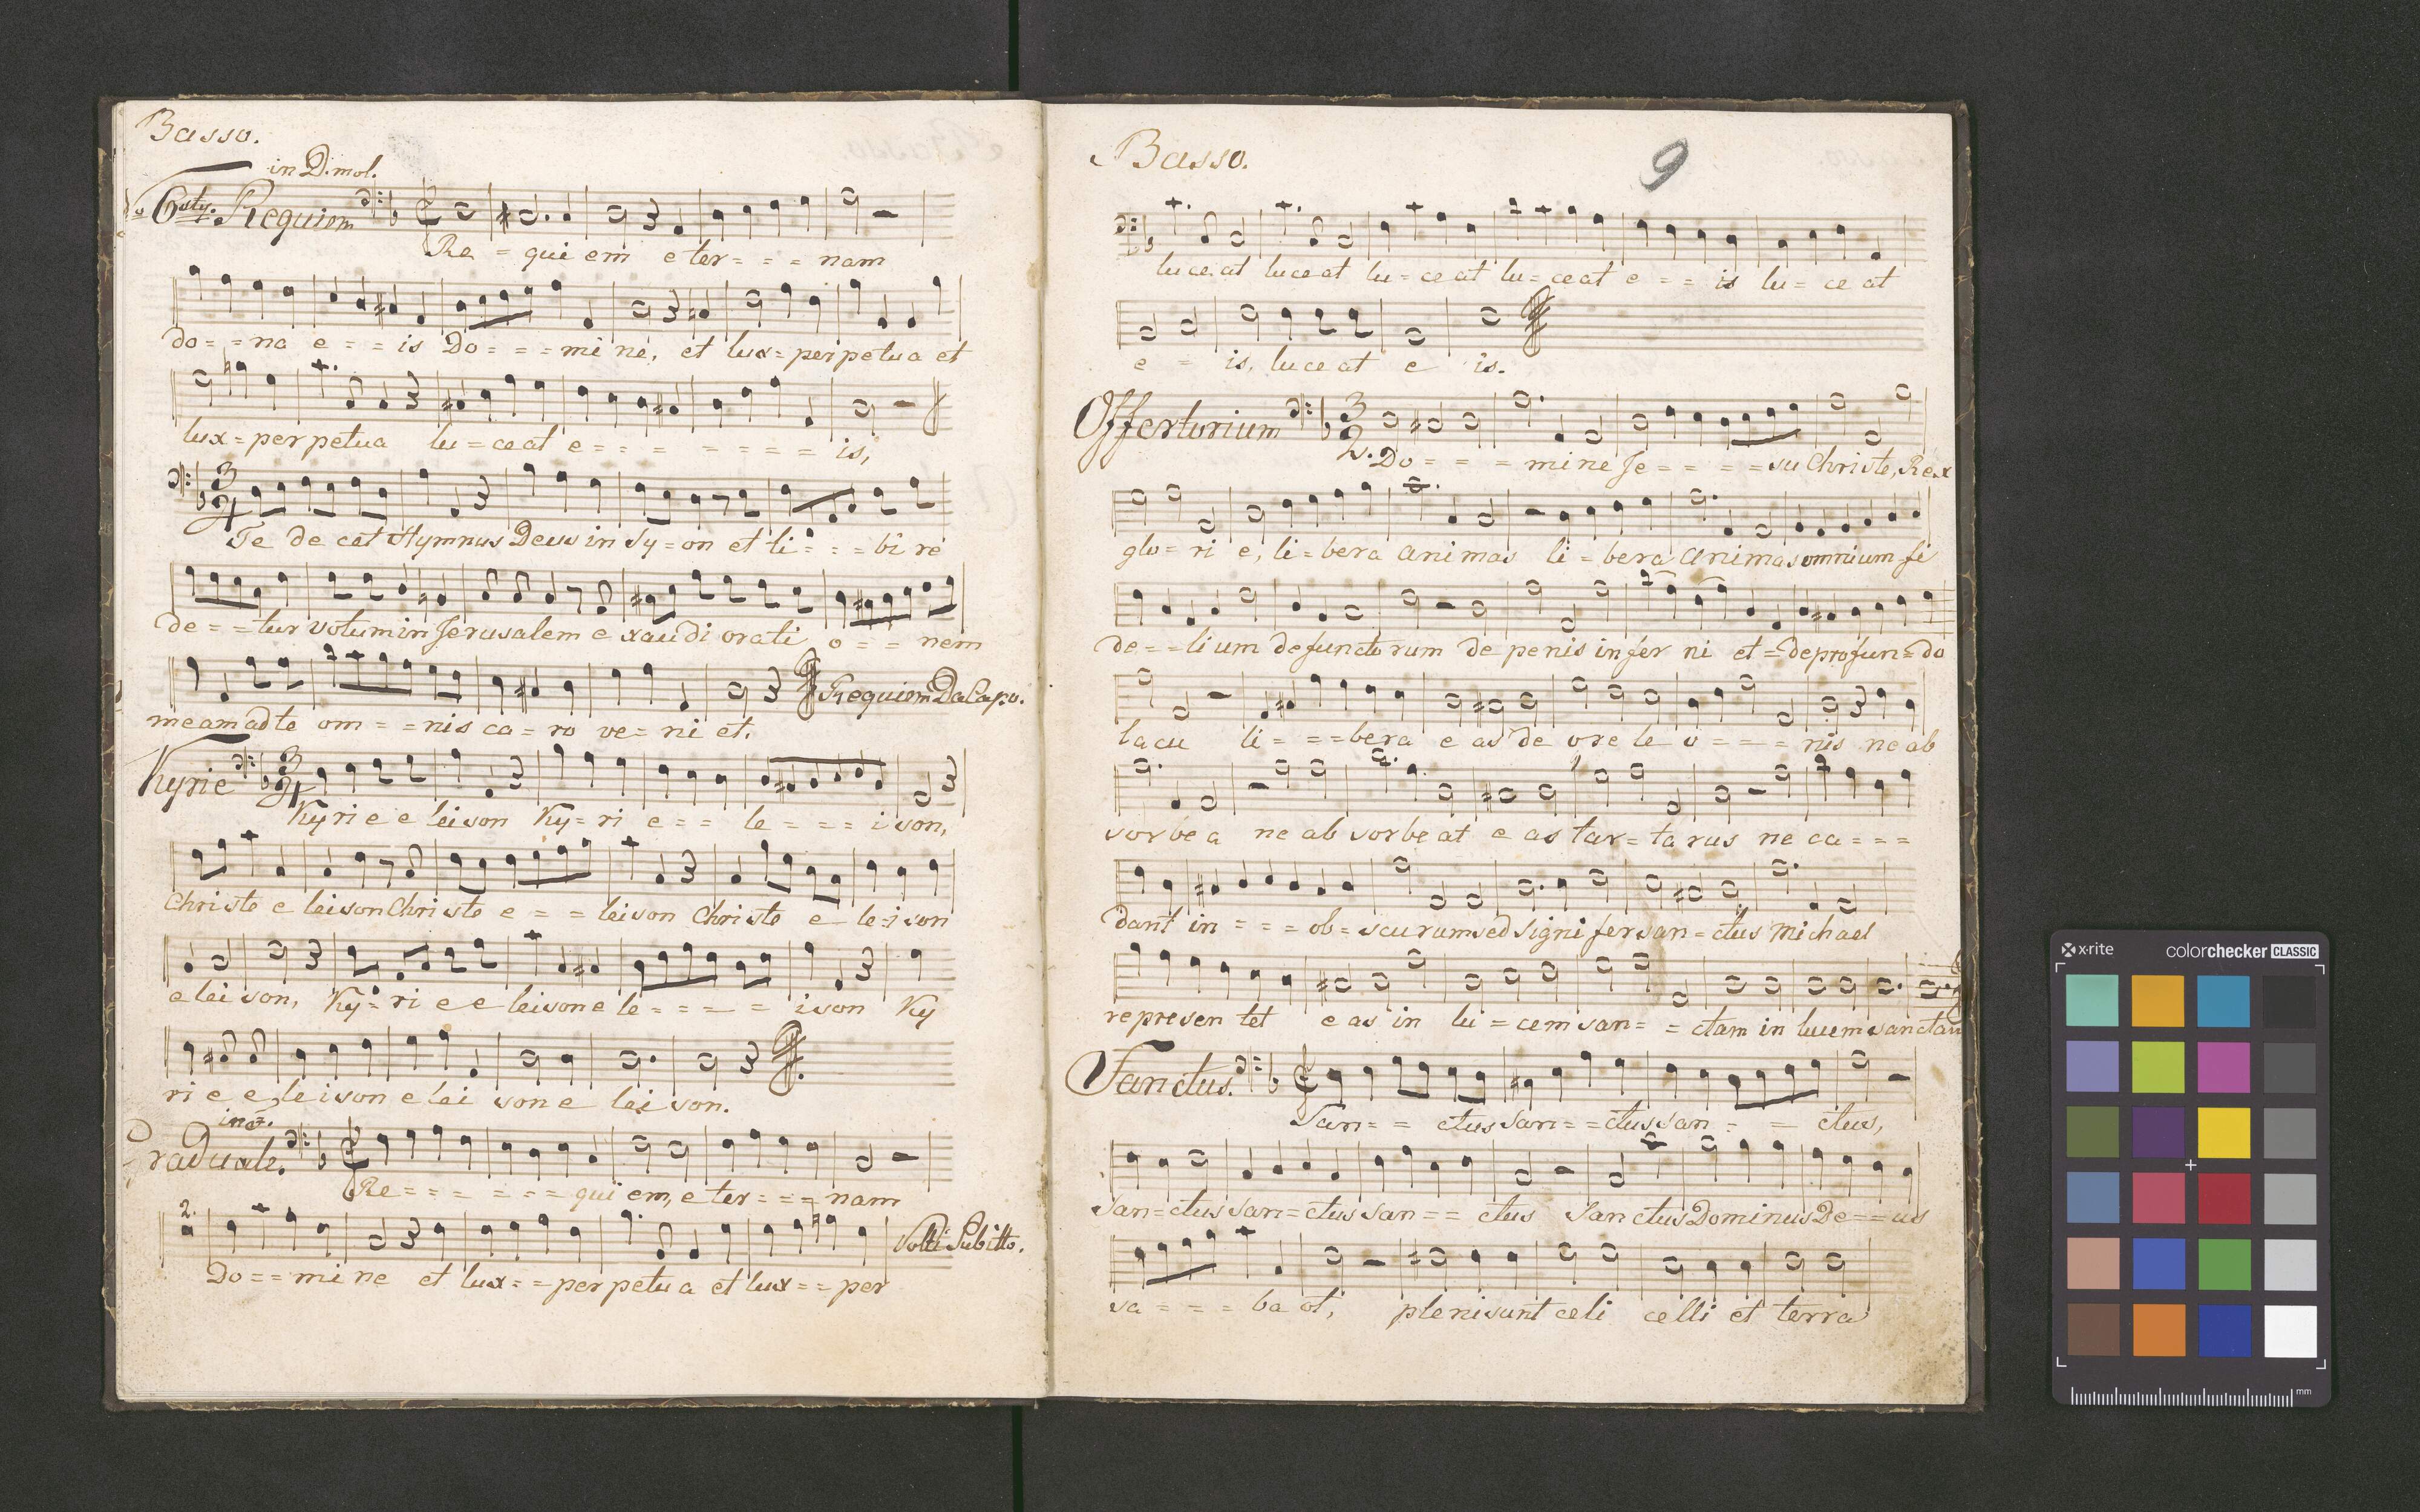 Basso.
in D. mol.
6sty. Requiem
Re = qui em e ter = = = nam
do = = na e = = is Do = = = mi ne, et lux = per petua et
lux = per petua lu = ceat e = = = = = = = is,
Te de cet Hymnus Deus in Sy = on et ti = = = bi re
de = = tur votum in Jerusalem e xaudi orati o = = nem
meam ad te om = = nis ca = ro ve = ni et. Requiem Da Capo.
Kyrie
Ky ri e e leison Ky = ri e = = le = = = i son,
Christe e leison Christe e = = leison Christe e le = i son
e lei son, Ky = ri e e leison e le = = = = i son Ky
ri e e leison e lei son e lei son.
Graduale.
Re = = = = = = qui em, e ter = = = nam
2.
Do = = mi ne et lux = = per petu a et lux = = per
Volti Subitto.
Basso.
9
luce at luce at lu = ce at lu = ce at e = = is lu = ce at
e = is, luce at e is.
Offertorium
Do = = = mi ne Je = = = = su Christe, Rex
glo = ri e, li = bera animas li = bera animas omnium fi
de = = li um defuncto rum de penis in fer ni et = de profun = do
lacu li = = = bera e as de ore le o = = = nis ne ab
sorbe a ne ab sorbe at e as tar = ta rus ne ca = = =
dant in = = = ob = scurum sed signi fer san = ctus Michael
represen tet e as in lu = cem san = = ctam in lucem sanctam
Sanctus.
San = = ctus san = = ctus san = = ctus,
San = ctus san = ctus san = = ctus Sanctus Dominus De = = us
sa = = = ba ot, pleni sunt celi celli et terra
x-rite
colorchecker CLASSIC
mm